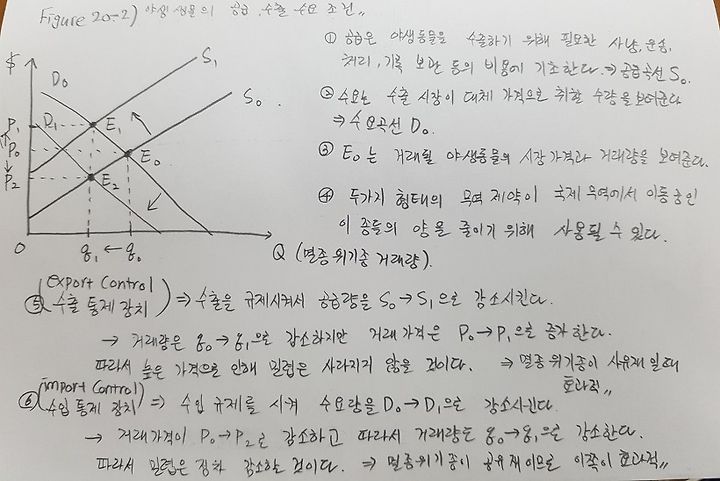 Figure 20-2) 야생생물의 공급, 수출 수요 조건..
① 공급은 야생동물을 수출하기 위해 필요한 사냥, 운송,
처리, 기록 보관 등의 비용에 기초한다. ⇒ 공급곡선 S₀.
② 수요는 수출 시장이 대체 가격으로 취할 수량을 보여준다
⇒ 수요곡선 D₀.
③ E₀는 거래될 야생동물의 시장가격과 거래량을 보여준다.
④ 두가지 형태의 무역 제약이 국제 무역에서 이동중인
이 종들의 양을 줄이기 위해 사용될 수 있다.
$
D₀
S₁
S₀
P₁
D₁
E₁
P₀
E₀
P₂
E₂
0
q₁ ← q₀
Q (멸종위기종 거래량).
⑤ (export control) 수출 통제 장치 ⇒ 수출을 규제시켜서 공급량을 S₀→S₁으로 감소시킨다.
→ 거래량은 q₀→q₁으로 감소하지만 거래 가격은 P₀→P₁으로 증가한다.
따라서 높은 가격으로 인해 밀렵은 사라지지 않을 것이다. ⇒ 멸종위기종이 사유재일 때 효과적〃
⑥ (import control) 수입 통제 장치 ⇒ 수입 규제를 시켜 수요량을 D₀→D₁으로 감소시킨다.
→ 거래가격이 P₀→P₂로 감소하고 따라서 거래량도 q₀→q₁으로 감소한다.
따라서 밀렵은 점차 감소할 것이다. ⇒ 멸종위기종이 공유재이므로 이쪽이 효과적〃